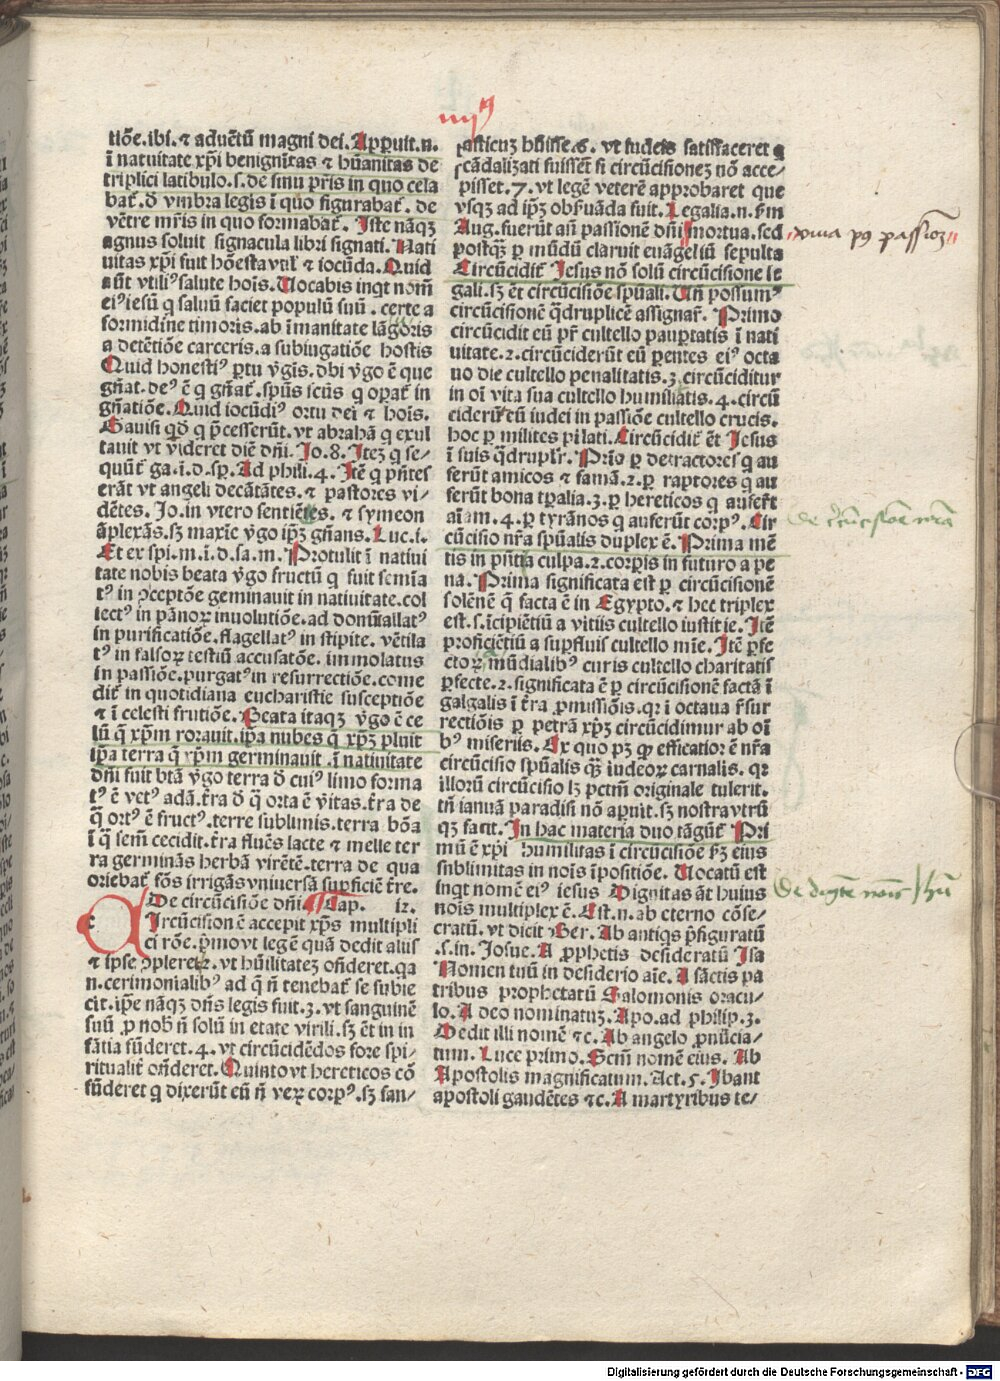 iiij⁹
tiōe.ibi.⁊ aduētū magni dei.Apꝑuit.n.
ī natuitate xp̄i benignitas ⁊ hūanitas de
triplici latibulo.s.de sinu pr̄is in quo cela
bat̄.d̄ vmbra legis ī quo figurabat̄.de
vētre mr̄is in quo formabat̄. Iste nāqꝫ
agnus soluit signacula libri signati.Nati
uitas xp̄i fuit hōesta vtil̄ ⁊ iocūda.Quid
eī⁹ iesū q saluū faciet populū suū.certe a
formidine timoris.ab īmanitate lāgoris
a detētiōe carceris.a subiugatiōe hostis
Quid honesti⁹ ꝑtu ꝟgīs.vbi ꝟgo ē que
gn̄at.de⁹ ē q gn̄at̄.spūs scūs q oꝑat̄ in
gn̄atiōe.Quid iocūdi⁹ ortu dei ⁊ hoīs.
Gauisi qꝺ q p̄cesserūt.vt abrahā q exul
tauit vt videret diē dn̄i.Io.8.Iteꝫ q se⸗
quūt̄ ga.i.d.sp̄.Ad phili.4.Itē q pn̄tes
erāt vt angeli decātātes.⁊ pastores vi⸗
dētes.Io.in vtero sentiētes.⁊ symeon
aplexās.sꝫ maxīe ꝟgo ip̄ꝫ gn̄ans.Luc.i.
Et ex spi.m.i.d.sa.m.Protulit ī natiui
tate nobis beata ꝟgo fructū q fuit semīa
t⁹ in ꝯceptōe geminauit in natiuitate.col
lect⁹ in pānoꝝ inuolutiōe.ad donū allat⁹
in purificatiōe.flagellat⁹ in stipite.vētila
t⁹ in falsoꝝ testiū accusatōe.immolatus
in passiōe.purgat⁹ in resurrectiōe.come
dit̄ in quotidiana eucharistie susceptiōe
⁊ ī celesti frutiōe.Beata itaqꝫ ꝟgo ē ce
lū q̄ xp̄m rorauit.ip̄a nubes q̄ xp̄ꝫ pluit
ip̄a terra q̄ xp̄m germinauit.ī natiuitate
dn̄i fuit btā ꝟgo terra d̄ cui⁹ limo forma
t⁹ ē vet⁹ adā.t̄ra d̄ q̄ orta ē ꝟitas.t̄ra de
q̄ ort⁹ ē fruct⁹.terre sublimis.terra bōa
ī q̄ sem̄ cecidit.t̄ra fluēs lacte ⁊ melle ter
ra germinās herbā virētē.terra de qua
oriebat̄ fōs irrigās vniuersā suꝑficiē t̄re.
De circūcisiōe dn̄i. Cap. ix.
CIrcūcisionē accepit xp̄s multipli
ci rōe.p̄mo vt legē quā dedit aliis
⁊ ipse ꝯpleret.2.vt hūilitateꝫ on̄deret.qa
n.cerimonialib⁹ ad q̄ n̄ tenebat̄ se subie
cit.ip̄e nāqꝫ dn̄s legis fuit.3.vt sanguinē
suū ꝓ nob̄ n̄ solū in etate virili.sꝫ ēt in in
fātia fūderet.4.vt circūcidēdos fore spi⸗
ritualit̄ on̄deret.Quinto vt hereticos cō
fūderet q dixerūt eū n̄ veꝝ corp⁹.sꝫ fan⸗
tasticuꝫ hūisse.6.vt iudeis satisfaceret q
scādalizati fuissēt si circūcisioneꝫ nō acce⸗
pisset.7.vt legē veterē approbaret que
vsqꝫ ad ip̄ꝫ obſuāda fuit.Legalia.n.ẜm
Aug.fuerūt an̄ passionē dn̄i mortua.sed
postqꝫ ꝑ mūdū claruit euāgeliū sepulta
Circūcidit̄ Iesus nō solū circūcisione le
gali.sꝫ ēt circūcisiōe spūali.Un̄ possum⁹
circūcisionē q̄druplicē assignar̄.Primo
circūcidit eū pr̄ cultello pauꝑtatis ī nati
uitate.2.circūciderūt eū ꝑentes ei⁹ octa
uo die cultello penalitatis.3.circūciditur
in oī vita sua cultello humilitatis.4.circū
ciderūt eū iudei in passiōe cultello crucis.
hoc ꝑ milites pilati.Circūcidit̄ ēt Iesus
ī suis q̄druplr̄.Prīo ꝑ detractores q au
ferūt amicos ⁊ famā.2.ꝑ raptores q au
ferūt bona tꝑalia.3.ꝑ hereticos q aufer̄t
aīam.4.ꝑ tyrānos q auferūt corp⁹.Cir
cūcisio nr̄a spūalis duplex ē.Prima mē
tis in pn̄tia culpa.2.corꝑis in futuro a pe
na.Prima significata est ꝑ circūcisionē
solēnē q̄ facta ē in Egypto.⁊ hec triplex
est.s.īcipiētiū a vitiis cultello iustitie.Itē
proficiētiū a suꝑfluis cultello mīe.Itē ꝑfe
ctoꝝ mūdialib⁹ curis cultello charitatis
ꝑfecte.2.significata ē ꝑ circūcisionē factā ī
galgalis ī t̄ra ꝓmissiōis.qꝛ ī octaua r̄sur
rectiōis ꝑ petrā xp̄ꝫ circūcidimur ab oī
b⁹ miseriis.Ex quo pꝫ ꝙ efficatior ē nr̄a
circūcisio spūalis q̄ꝫ iudeoꝝ carnalis.qꝛ
illorū circūcisio lꝫ pctm̄ originale tulerit.
tn̄ ianuā paradisi nō aꝑuit.sꝫ nostra vtrū
qꝫ facit.In hac materia duo tāgūt̄.Pri
mū ē xp̄i humilitas ī circūcisiōe ẜꝫ eius
sublimitas in nois īpositiōe.Uocatū est
inqt nomē ei⁹ iesus.Dignitas āt huius
nois multiplex ē.Est.n.ab eterno cōse⸗
cratū.vt dicit Ber.Ab antiqs p̄figuratū
.s.in.Iosue.A ꝓphetis desideratū Isa
Nomen tuū in desiderio aīe.A sāctis pa
tribus prophetatū Salomonis oracu⸗
lo.A deo nominatuꝫ.Apo.ad philip.3.
Dedit illi nomē ⁊c.Ab angelo ꝓnūcia⸗
tum.Luce primo.Ecm̄ nomē eius.Ab
Apostolis magnificatum.Act.5.Ibant
apostoli gaudētes ⁊c.A martyribus te⸗
p⁹ passionē
De circūcisiōe nr̄a
De digte nois Ihū
Digitalisierung gefördert durch die Deutsche Forschungsgemeinschaft - DFG